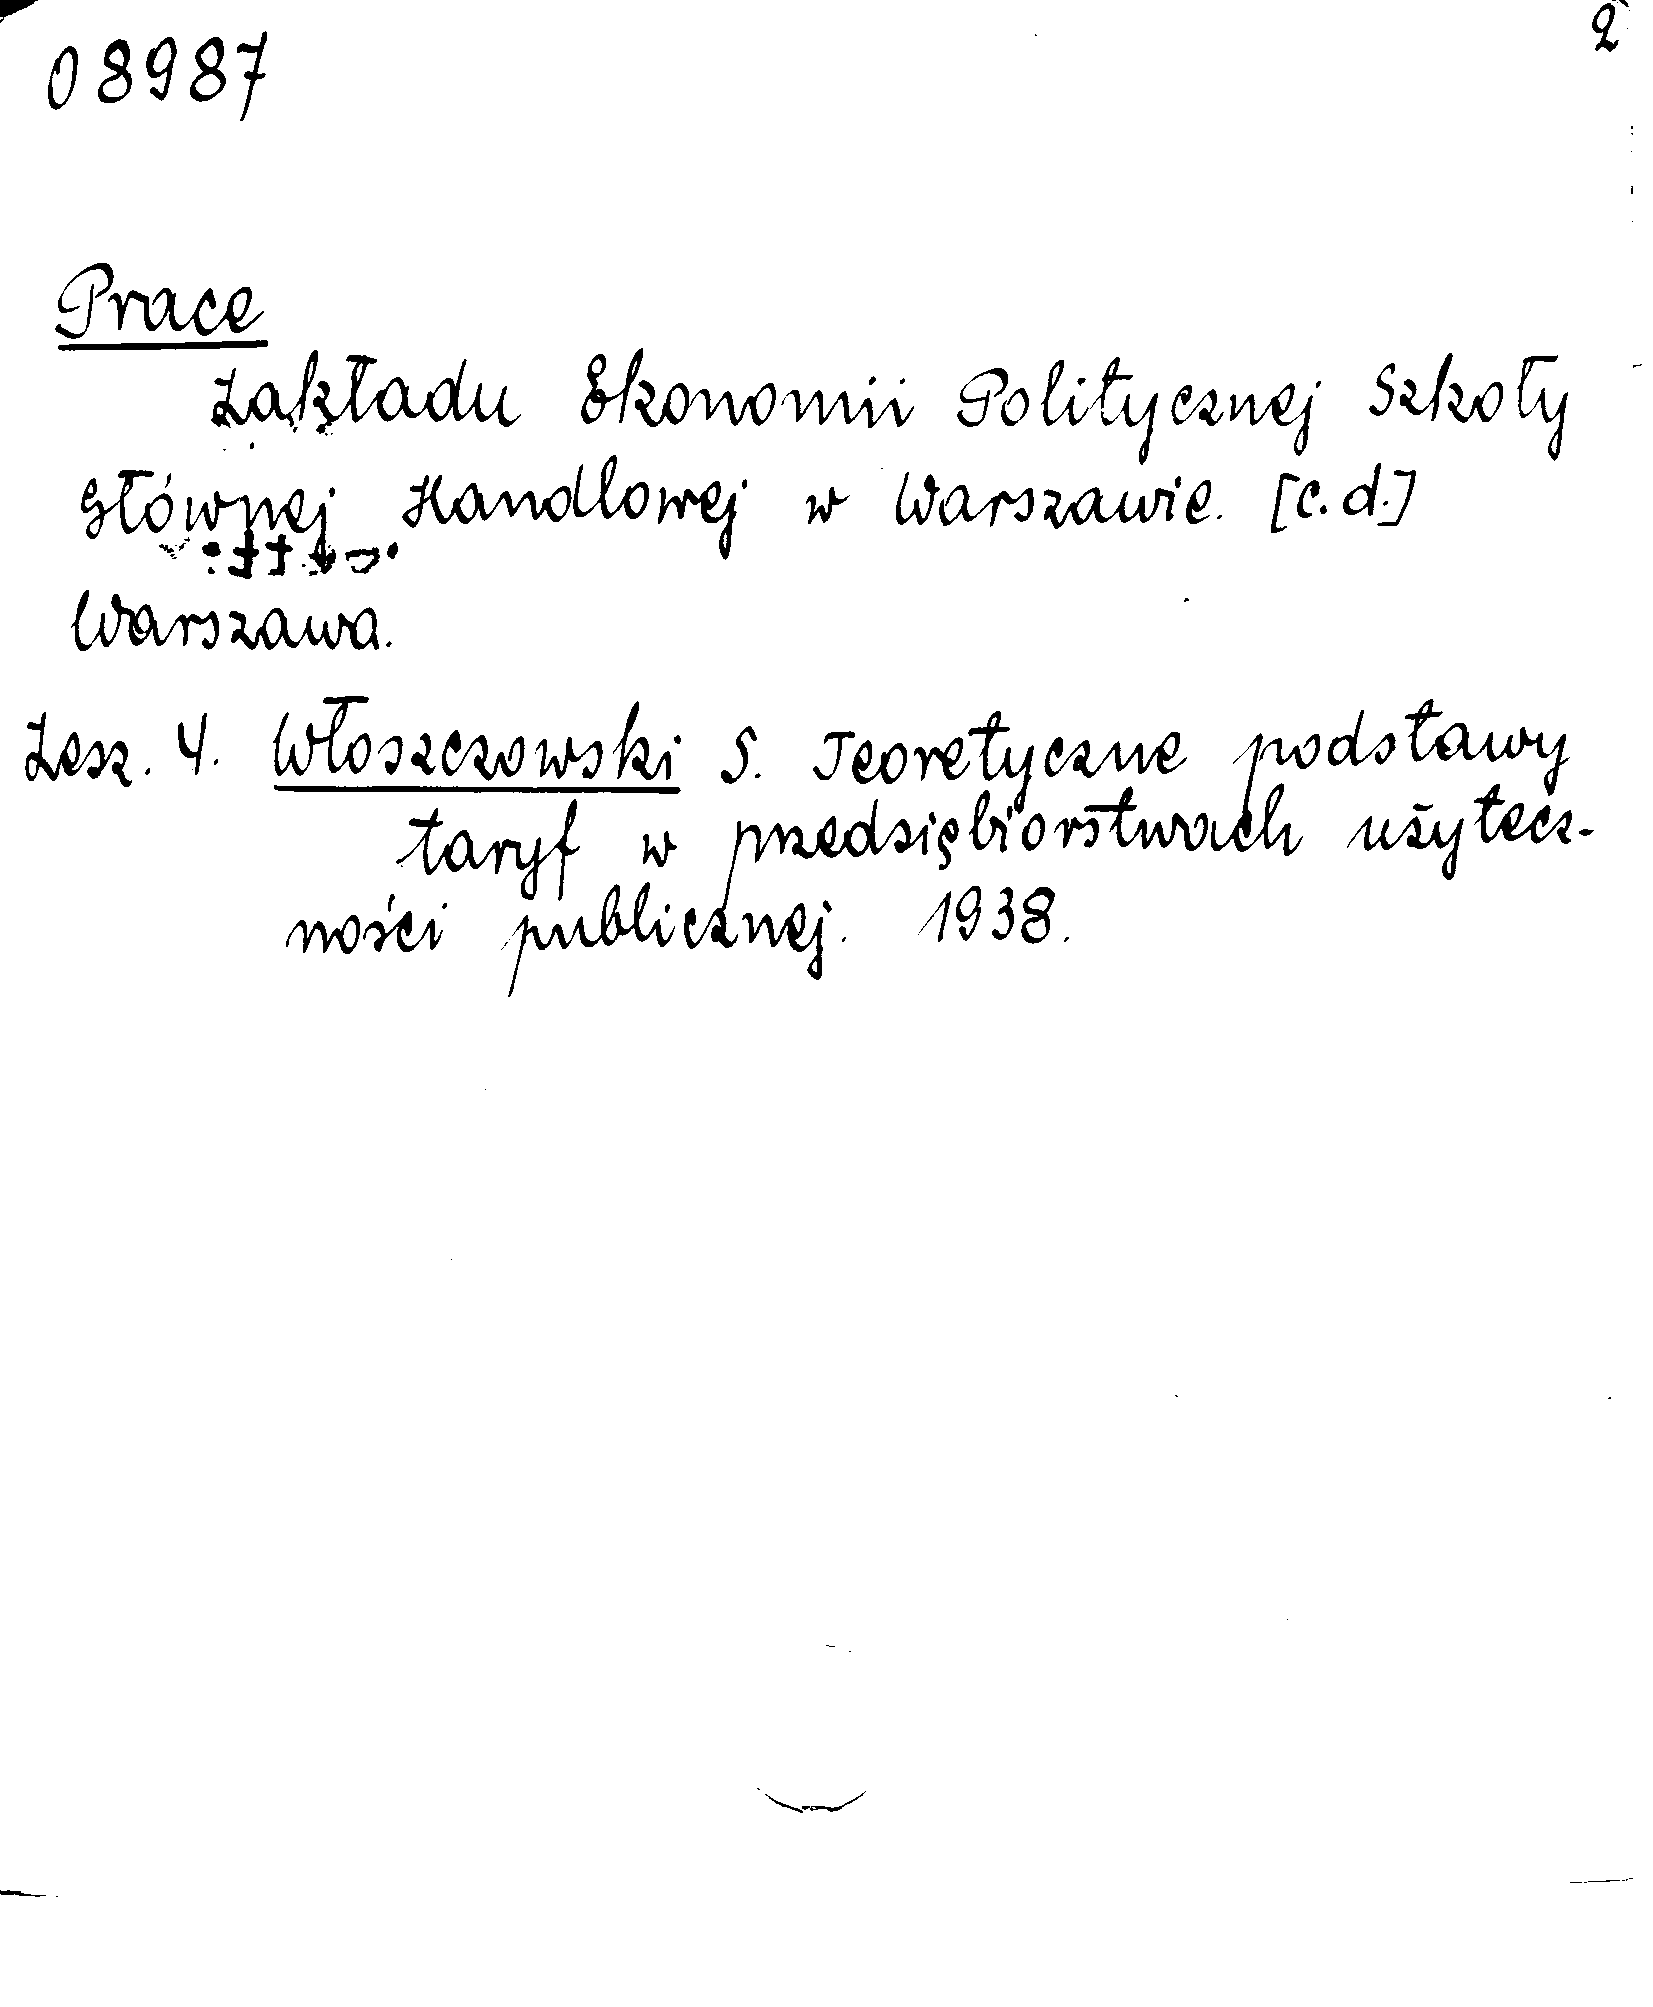 08987
2
Prace
Zakładu Ekonomii Politycznej Szkoły
Głównej Handlowej w Warszawie. [c.d.]
Warszawa.
Zesz. 4. Włoszczowski S. Teoretyczne podstawy
taryf w przedsiębiorstwach użytecz-
ności publicznej. 1938.